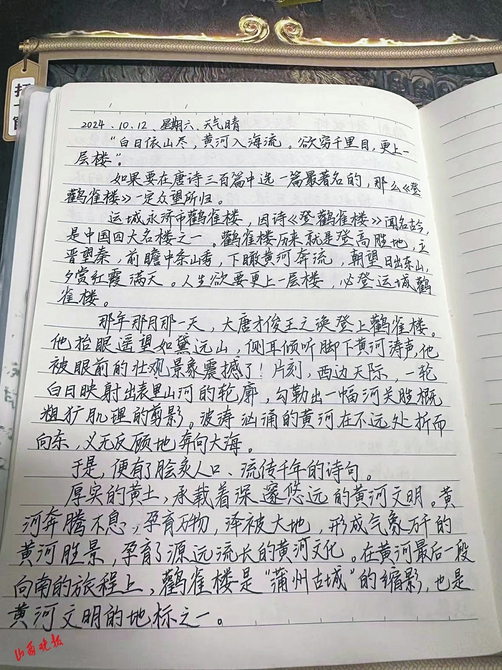 2024.10.12. 星期六、天气晴
"白日依山尽，黄河入海流。欲穷千里目，更上一
层楼"。
如果要在唐诗三百篇中选一篇最著名的，那么《登
鹳雀楼》一定众望所归。
运城永济市鹳雀楼，因诗《登鹳雀楼》闻名古今，
是中国四大名楼之一。鹳雀楼历来就是登高胜地，立
晋望秦，前瞻中条山秀，下瞰黄河奔流，朝望日出东山，
夕赏红霞满天。人生欲要更上一层楼，必登运城鹳
雀楼。
那年那月那一天，大唐才俊王之涣登上鹳雀楼。
他抬眼遥望如黛远山，侧耳倾听脚下黄河涛声，他
被眼前的壮观景象震撼了！片刻，西边天际，一轮
白日映射出表里山河的轮廓，勾勒出一幅河关胜概
粗犷肌理的剪影。波涛汹涌的黄河在不远处折而
向东，义无反顾地奔向大海。
于是，便有了脍炙人口、流传千年的诗句。
厚实的黄土，承载着深邃悠远的黄河文明。黄
河奔腾不息，孕育万物，泽被大地，形成气象万千的
黄河胜景，孕育了源远流长的黄河文化。在黄河最后一段
向南的旅程上，鹳雀楼是"蒲州古城"的缩影，也是
黄河文明的地标之一。
山西晚报